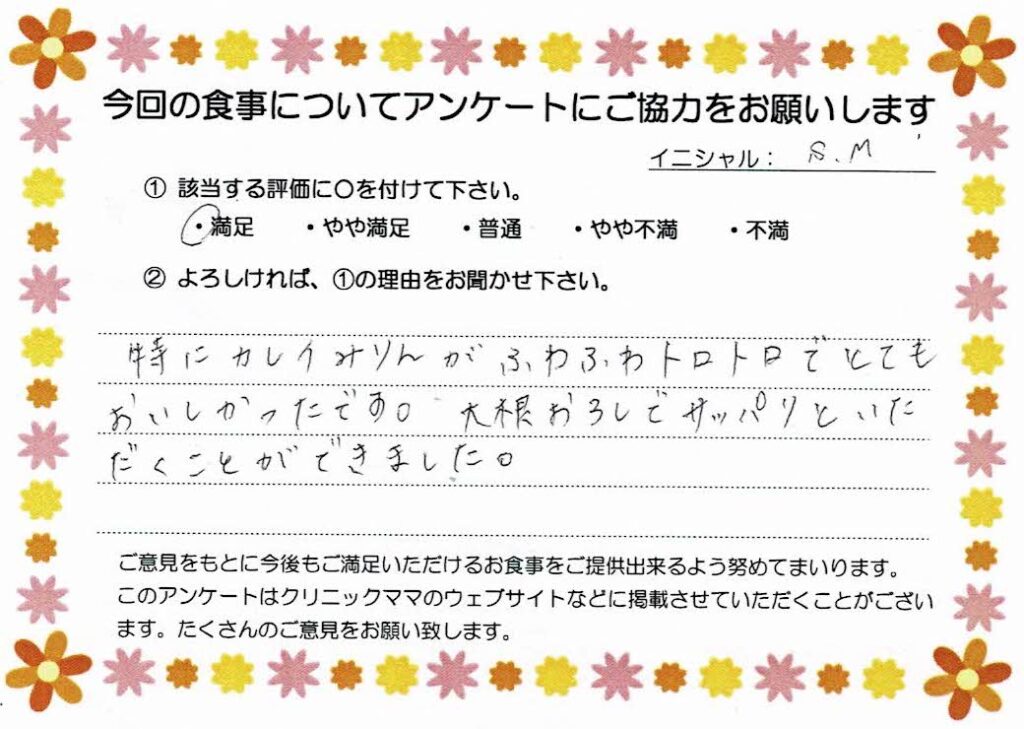 今回の食事についてアンケートにご協力をお願いします
イニシャル： S.M
① 該当する評価に○を付けて下さい。
・満足 ・やや満足 ・普通 ・やや不満 ・不満
② よろしければ、①の理由をお聞かせ下さい。
特にカレイみりんがふわふわトロトロでとても
おいしかったです。大根おろしでサッパリといた
だくことができました。
ご意見をもとに今後もご満足いただけるお食事をご提供出来るよう努めてまいります。
このアンケートはクリニックママのウェブサイトなどに掲載させていただくことがござい
ます。たくさんのご意見をお願い致します。